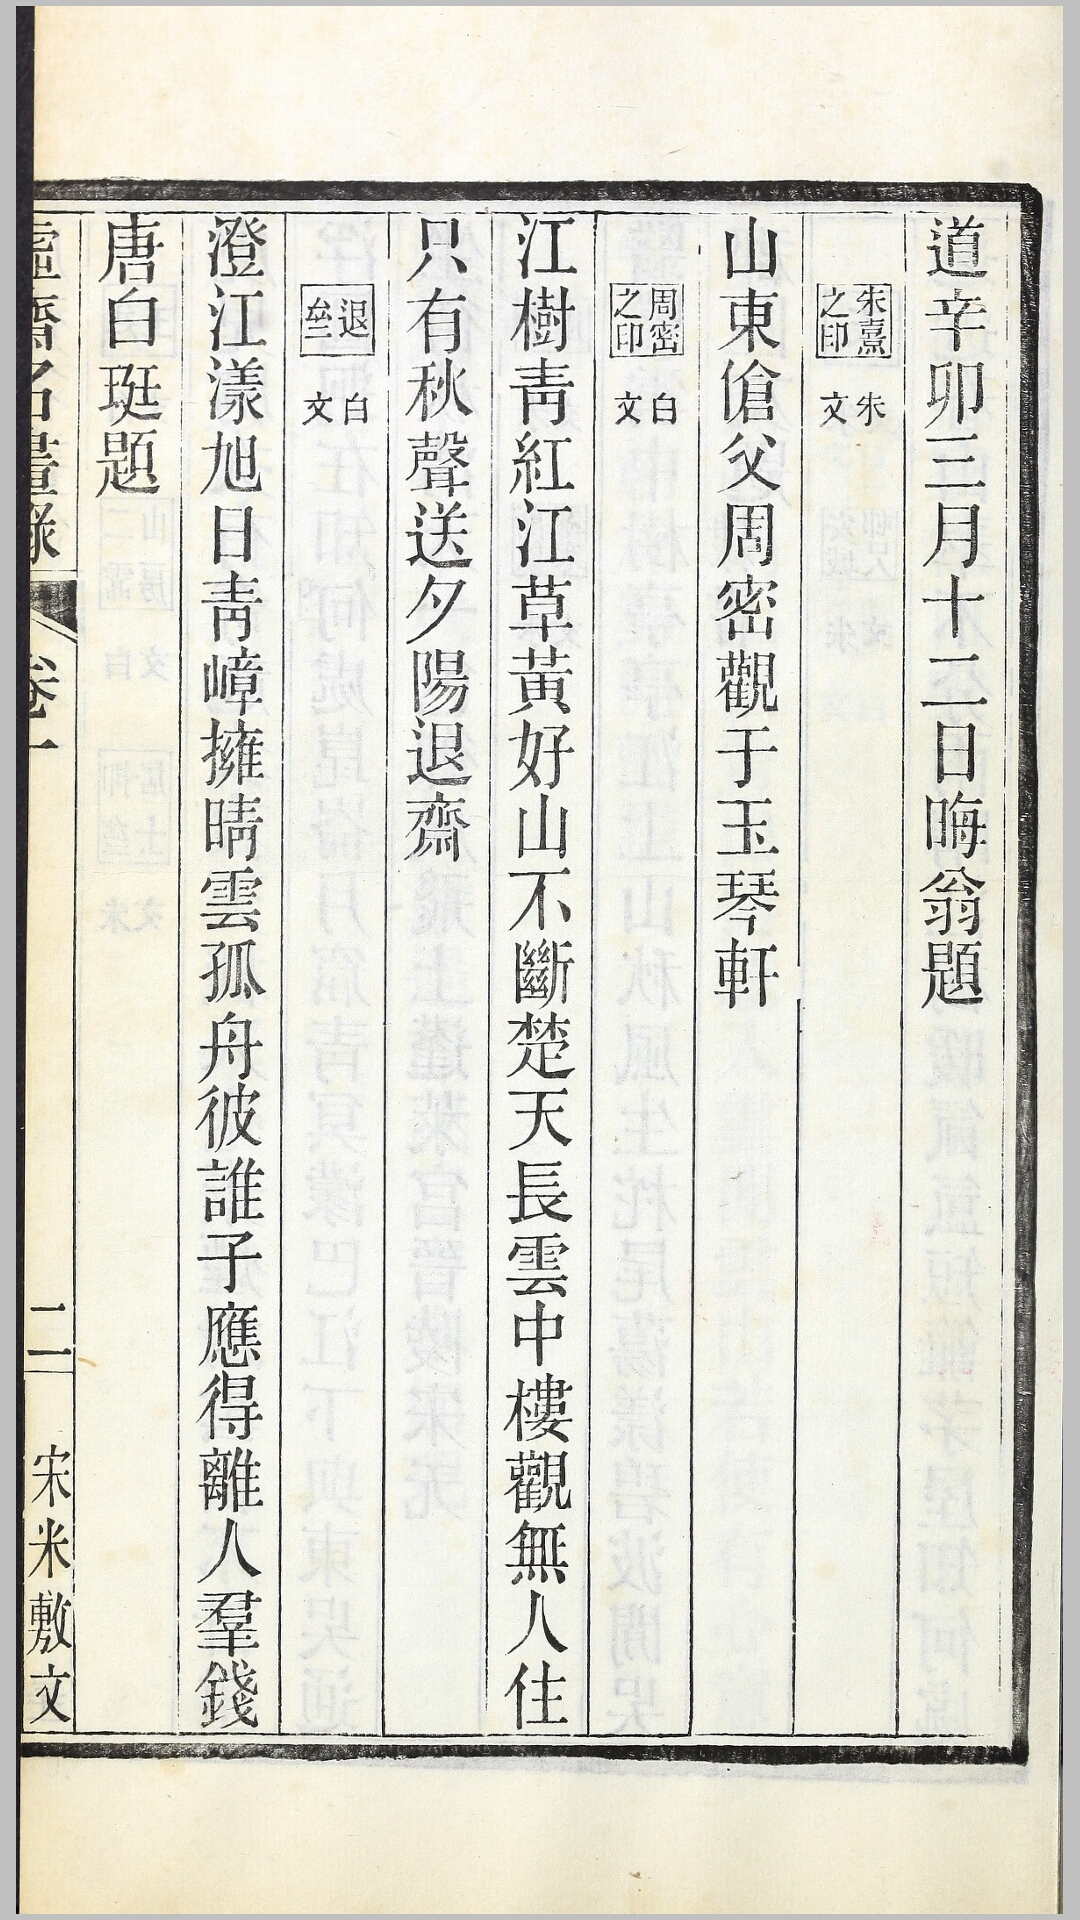 道辛卯三月十二日晦翁題
朱熹之印 朱文
山東傖父周密觀于玉琴軒
周密之印 白文
江樹青紅江草黃好山不斷楚天長雲中樓觀無人住
只有秋聲送夕陽退齋
退 白文
澄江漾旭日青嶂擁晴雲孤舟彼誰子應得離人羣錢
唐白珽題
虛齋名畫錄 卷一 二 宋米敷文